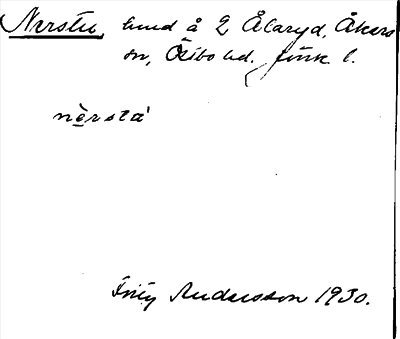 Nerstu, lund å 2 Ålaryd, Åkers
sn, Östbo hd. Jönk. l.
nèrsta'
Frity Andersson 1930.